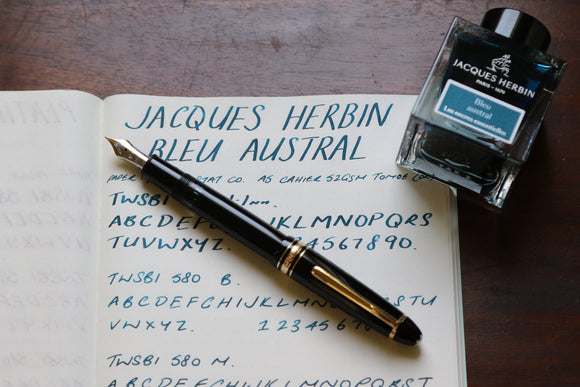 JACQUES HERBIN
BLEU AUSTRAL
PAPER STAT CO. A5 CAHIER 52GSM TOMOE
TWSBI
ABCDEFGHIJKLMNOPQRS
TUVWXYZ. 4567890.
TWSBI 580 B.
ABCDEFGHIJKLMN STU
VWXYZ. 123456
TWSBI 580 M.
ABCDEFGHIJKLMNOPQRST
JACQUES HERBIN
PARIS - 1670
Bleu
austral
Les encres essentielles